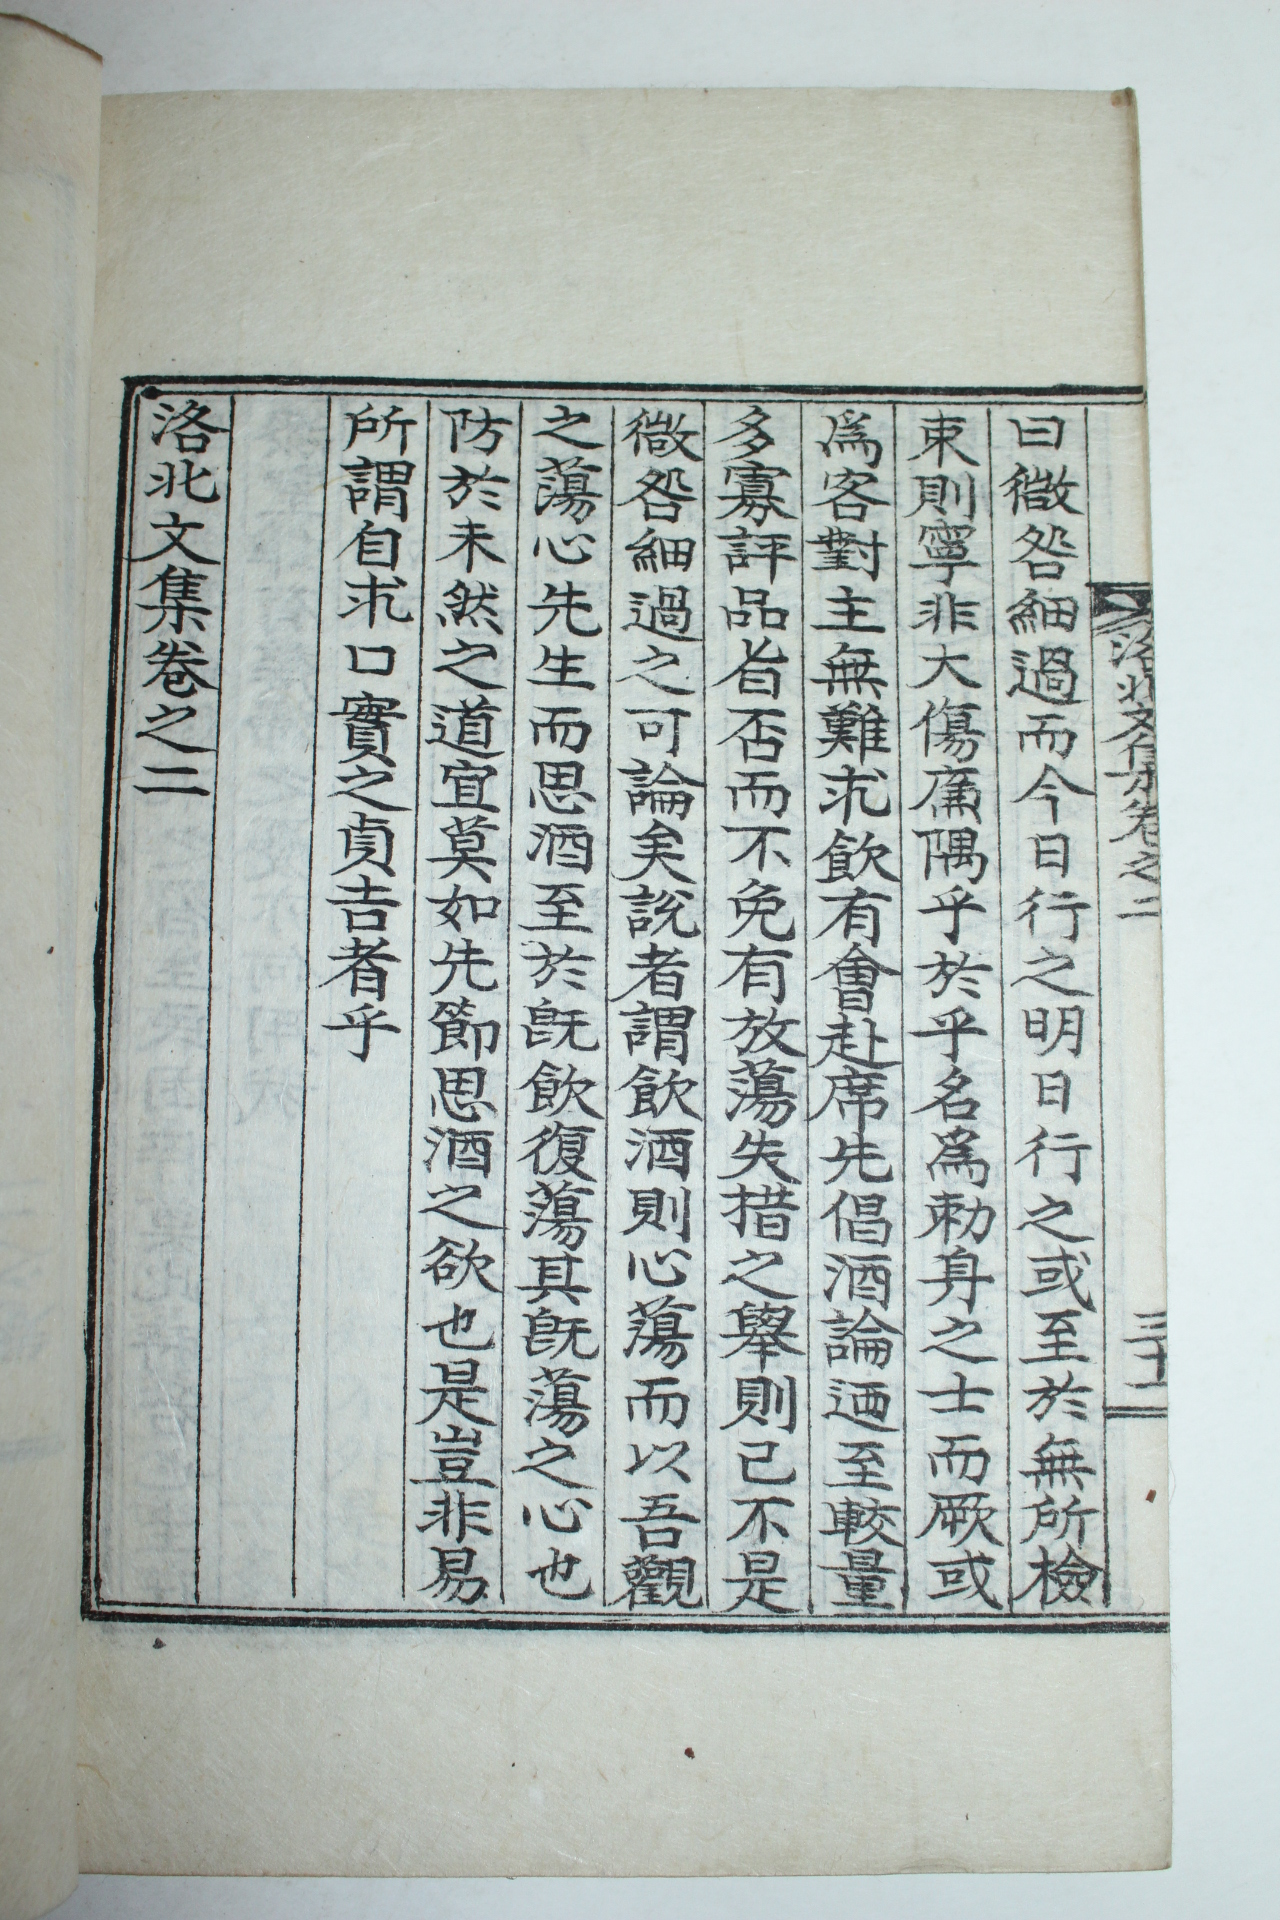 曰微咎細過而今日行之明日行之或至於無所檢
束則寧非大傷廉隅乎於乎名爲勑身之士而厥或
爲客對主無難求飮有會赴席先倡酒論迺至較量
多寡評品旨否而不免有放蕩失措之擧則已不是
微咎細過之可論矣說者謂飮酒則心蕩而以吾觀
之蕩心先生而思酒至於旣飮復蕩其旣蕩之心也
防於未然之道宜莫如先節思酒之欲也是豈非易
所謂自求口實之貞吉者乎
洛北文集卷之二
洛北文集卷之二
三十一